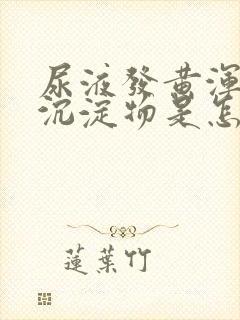 尿液發黃渾
沉淀物是怎
蓮葉竹